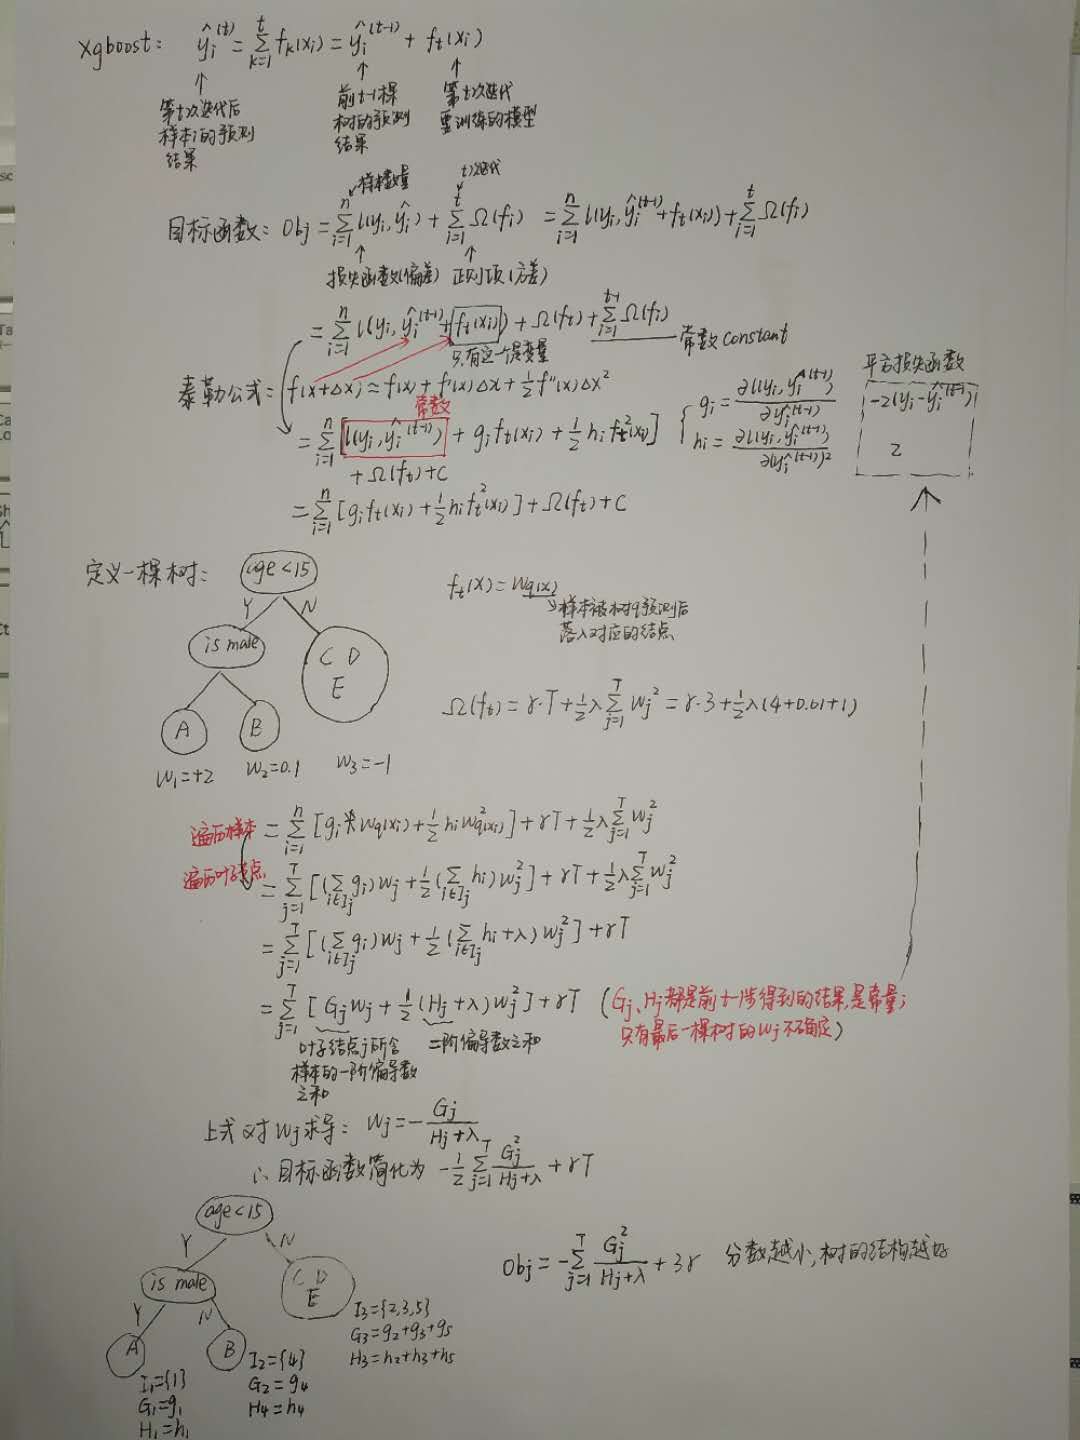 Xgboost: ŷᵢ⁽ᵗ⁾ = Σₖ₌₁ᵗ fₖ(xᵢ) = ŷᵢ⁽ᵗ⁻¹⁾ + fₜ(xᵢ)
第t次迭代后
样本i的预测
结果
前t-1棵
树的预测
结果
第t次迭代
要训练的模型
样本数量
t次迭代
目标函数: Obj = Σᵢ₌₁ⁿ l(yᵢ, ŷᵢ) + Σᵢ₌₁ᵗ Ω(fᵢ) = Σᵢ₌₁ⁿ l(yᵢ, ŷᵢ⁽ᵗ⁻¹⁾ + fₜ(xᵢ)) + Σᵢ₌₁ᵗ Ω(fᵢ)
损失函数(偏差) 正则项(方差)
= Σᵢ₌₁ⁿ l(yᵢ, ŷᵢ⁽ᵗ⁻¹⁾ + fₜ(xᵢ)) + Ω(fₜ) + Σᵢ₌₁ᵗ⁻¹ Ω(fᵢ)
只有这一个是变量
常数constant
泰勒公式: f(x+Δx) ≈ f(x) + f'(x)Δx + ½f''(x)Δx²
常数
= Σᵢ₌₁ⁿ [l(yᵢ, ŷᵢ⁽ᵗ⁻¹⁾) + gᵢfₜ(xᵢ) + ½hᵢfₜ²(xᵢ)]
+ Ω(fₜ) + C
gᵢ = ∂l(yᵢ, ŷᵢ⁽ᵗ⁻¹⁾) / ∂ŷᵢ⁽ᵗ⁻¹⁾
hᵢ = ∂l(yᵢ, ŷᵢ⁽ᵗ⁻¹⁾) / ∂(ŷᵢ⁽ᵗ⁻¹⁾)²
平方损失函数
-2(yᵢ - ŷᵢ⁽ᵗ⁻¹⁾)
2
= Σᵢ₌₁ⁿ [gᵢfₜ(xᵢ) + ½hᵢfₜ²(xᵢ)] + Ω(fₜ) + C
定义一棵树:
age<15
Y N
is male
C D
E
A B
W₁=+2 W₂=0.1 W₃=-1
fₜ(x) = W_q(x)
样本被树q预测后
落入对应的结点
Ω(fₜ) = γ·T + ½λ Σⱼ₌₁ᵀ Wⱼ² = γ·3 + ½λ(4+0.01+1)
遍历样本 = Σᵢ₌₁ⁿ [gᵢ*W_q(xᵢ) + ½hᵢW²_q(xᵢ)] + γT + ½λ Σⱼ₌₁ᵀ Wⱼ²
遍历叶子结点 = Σⱼ₌₁ᵀ [(Σ_{i∈Iⱼ} gᵢ)Wⱼ + ½(Σ_{i∈Iⱼ} hᵢ)Wⱼ²] + γT + ½λ Σⱼ₌₁ᵀ Wⱼ²
= Σⱼ₌₁ᵀ [(Σ_{i∈Iⱼ} gᵢ)Wⱼ + ½(Σ_{i∈Iⱼ} hᵢ+λ)Wⱼ²] + γT
= Σⱼ₌₁ᵀ [GⱼWⱼ + ½(Hⱼ+λ)Wⱼ²] + γT
(Gⱼ、Hⱼ都是前t-1步得到的结果,是常量;
只有最后一棵树的Wⱼ不确定)
叶子结点j所含
样本的一阶偏导数
之和
二阶偏导数之和
上式对Wⱼ求导: Wⱼ = -Gⱼ/(Hⱼ+λ)
∴目标函数简化为 -½ Σⱼ₌₁ᵀ Gⱼ²/(Hⱼ+λ) + γT
age<15
Y N
is male
Y N
C D
E
A B
I₁={1}
G₁=g₁
H₁=h₁
I₂={4}
G₂=g₄
H₄=h₄
I₃={2,3,5}
G₃=g₂+g₃+g₅
H₃=h₂+h₃+h₅
Obj = -Σⱼ₌₁ᵀ Gⱼ²/(Hⱼ+λ) + 3γ 分数越小,树的结构越好